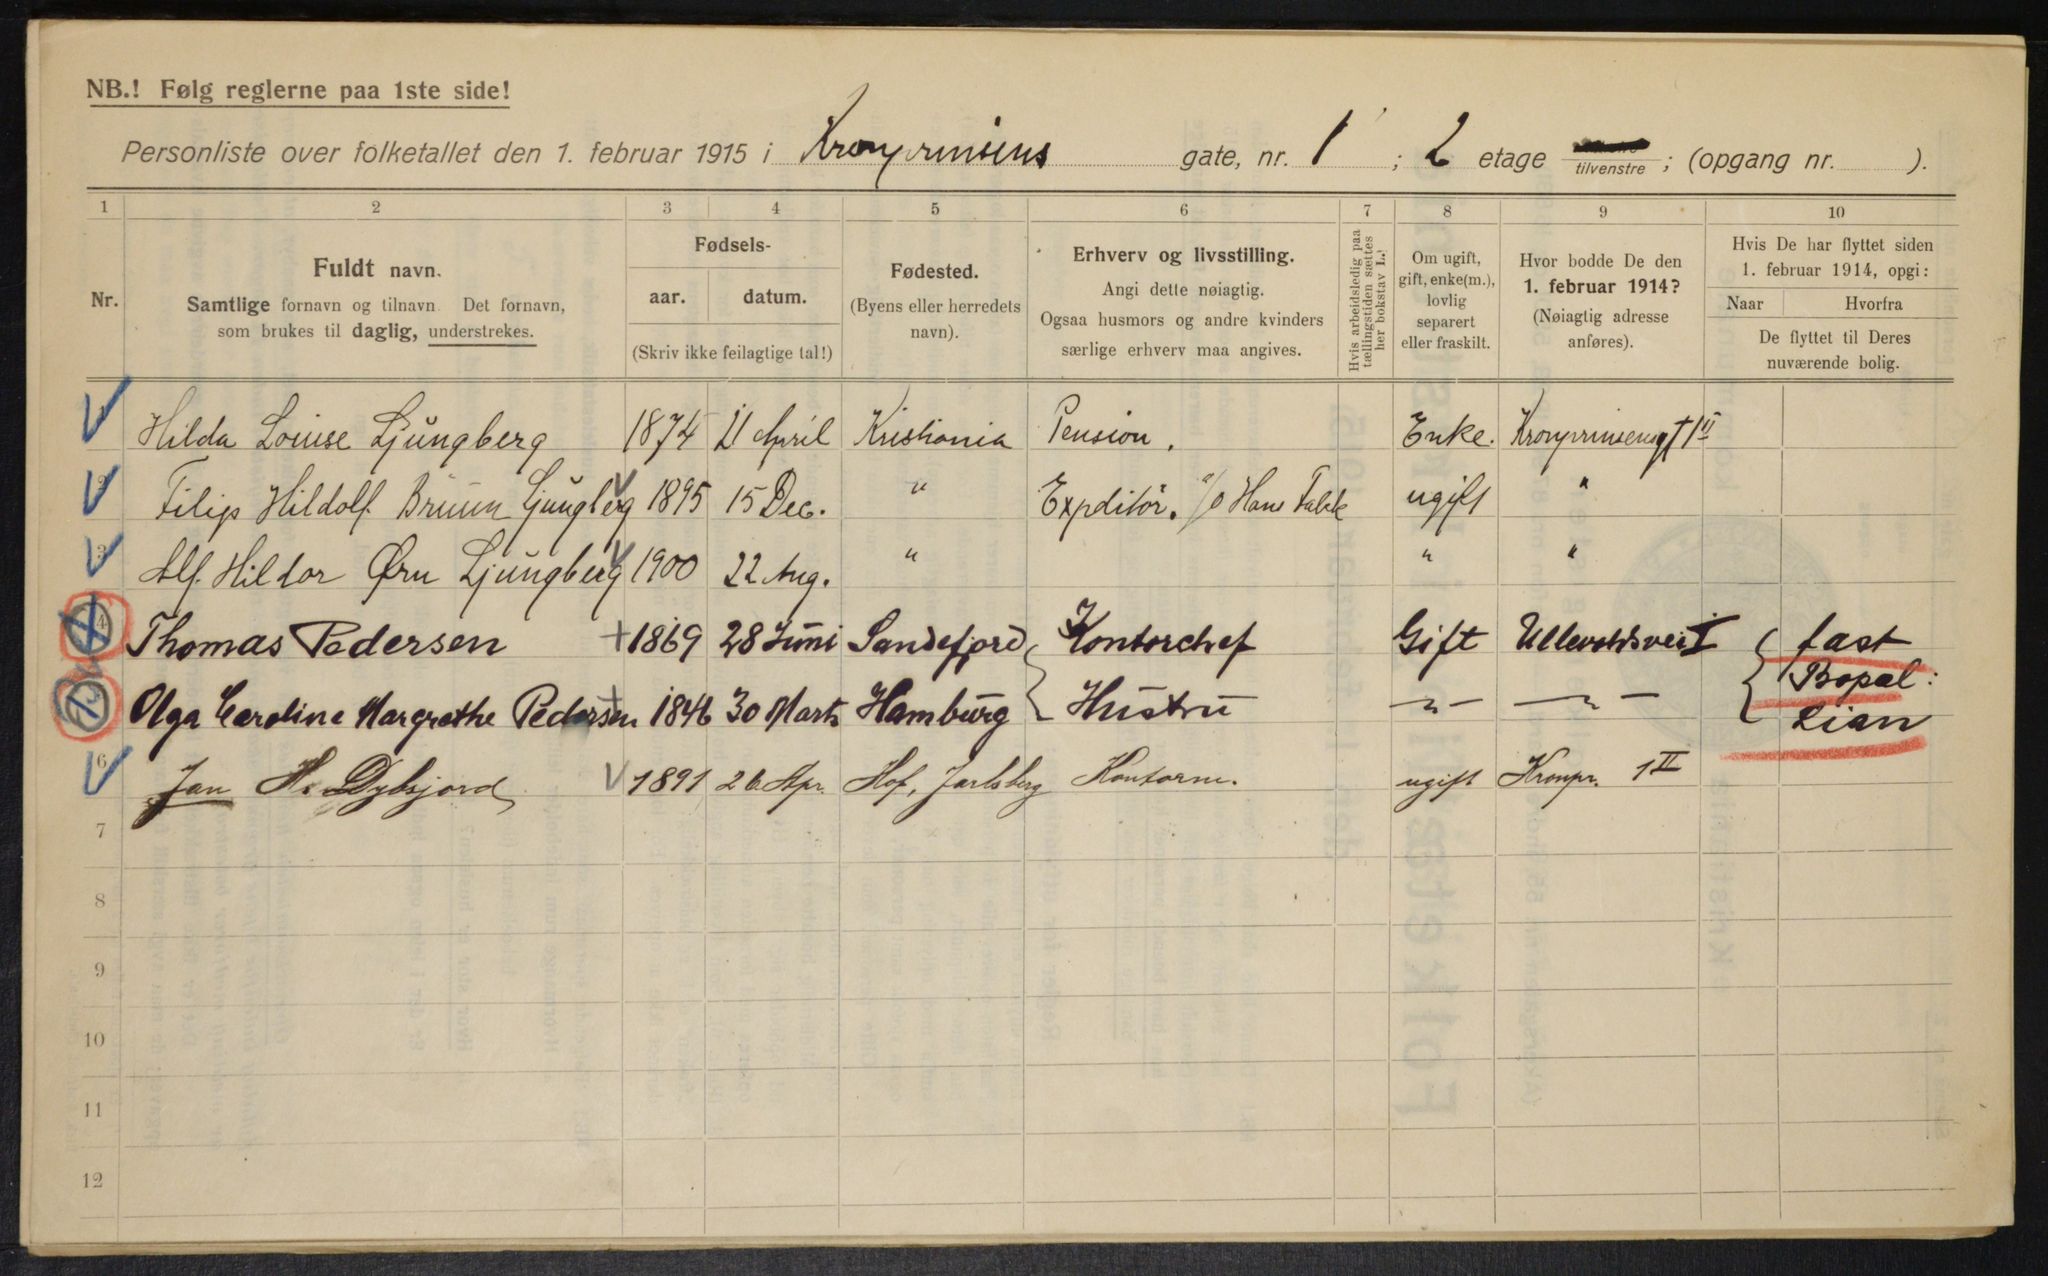 NB.! Følg reglerne paa 1ste side!
Personliste over folketallet den 1. februar 1915 i Kronprinsens gate, nr. 1 ; 2 etage tilvenstre ; (opgang nr. ).
1 2 3 4 5 6 7 8 9 10
Nr.
Fuldt navn.
Samtlige fornavn og tilnavn. Det fornavn,
som brukes til daglig, understrekes.
Fødsels-
aar. datum.
(Skriv ikke feilagtige tal!)
Fødested.
(Byens eller herredets
navn).
Erhverv og livsstilling.
Angi dette nøiagtig.
Ogsaa husmors og andre kvinders
særlige erhverv maa angives.
Hvis arbeidsledig paa
tællingstiden sættes
her bokstav L.
Om ugift,
gift, enke(m.),
lovlig
separert
eller fraskilt.
Hvor bodde De den
1. februar 1914?
(Nøiagtig adresse
anføres).
Hvis De har flyttet siden
1. februar 1914, opgi:
Naar Hvorfra
De flyttet til Deres
nuværende bolig.
Hilda Louise Ljungberg 1874 21 April Kristiania Pension. Enke. Kronprinsensgt 1 II
2 Filip Hildolf Bruun Ljungberg 1895 15 Dec. " Expeditør. Hans Falck ugift "
3 Alf Hildor Ørn Ljungberg 1900 22 Aug. " " "
4 Thomas Pedersen 1869 28 Juni Sandefjord Kontorchef Gift fast
Olga Caroline Margrethe Pedersen 1846 30 Marts Hamburg Hustru -"- -"- Bopæl:
Lian
6 Jan H. Dybsjord 1891 26 Apr. Hof, Jarlsberg Kontorm. ugift Kronpr. 1 II
7
8
9
10
11
12